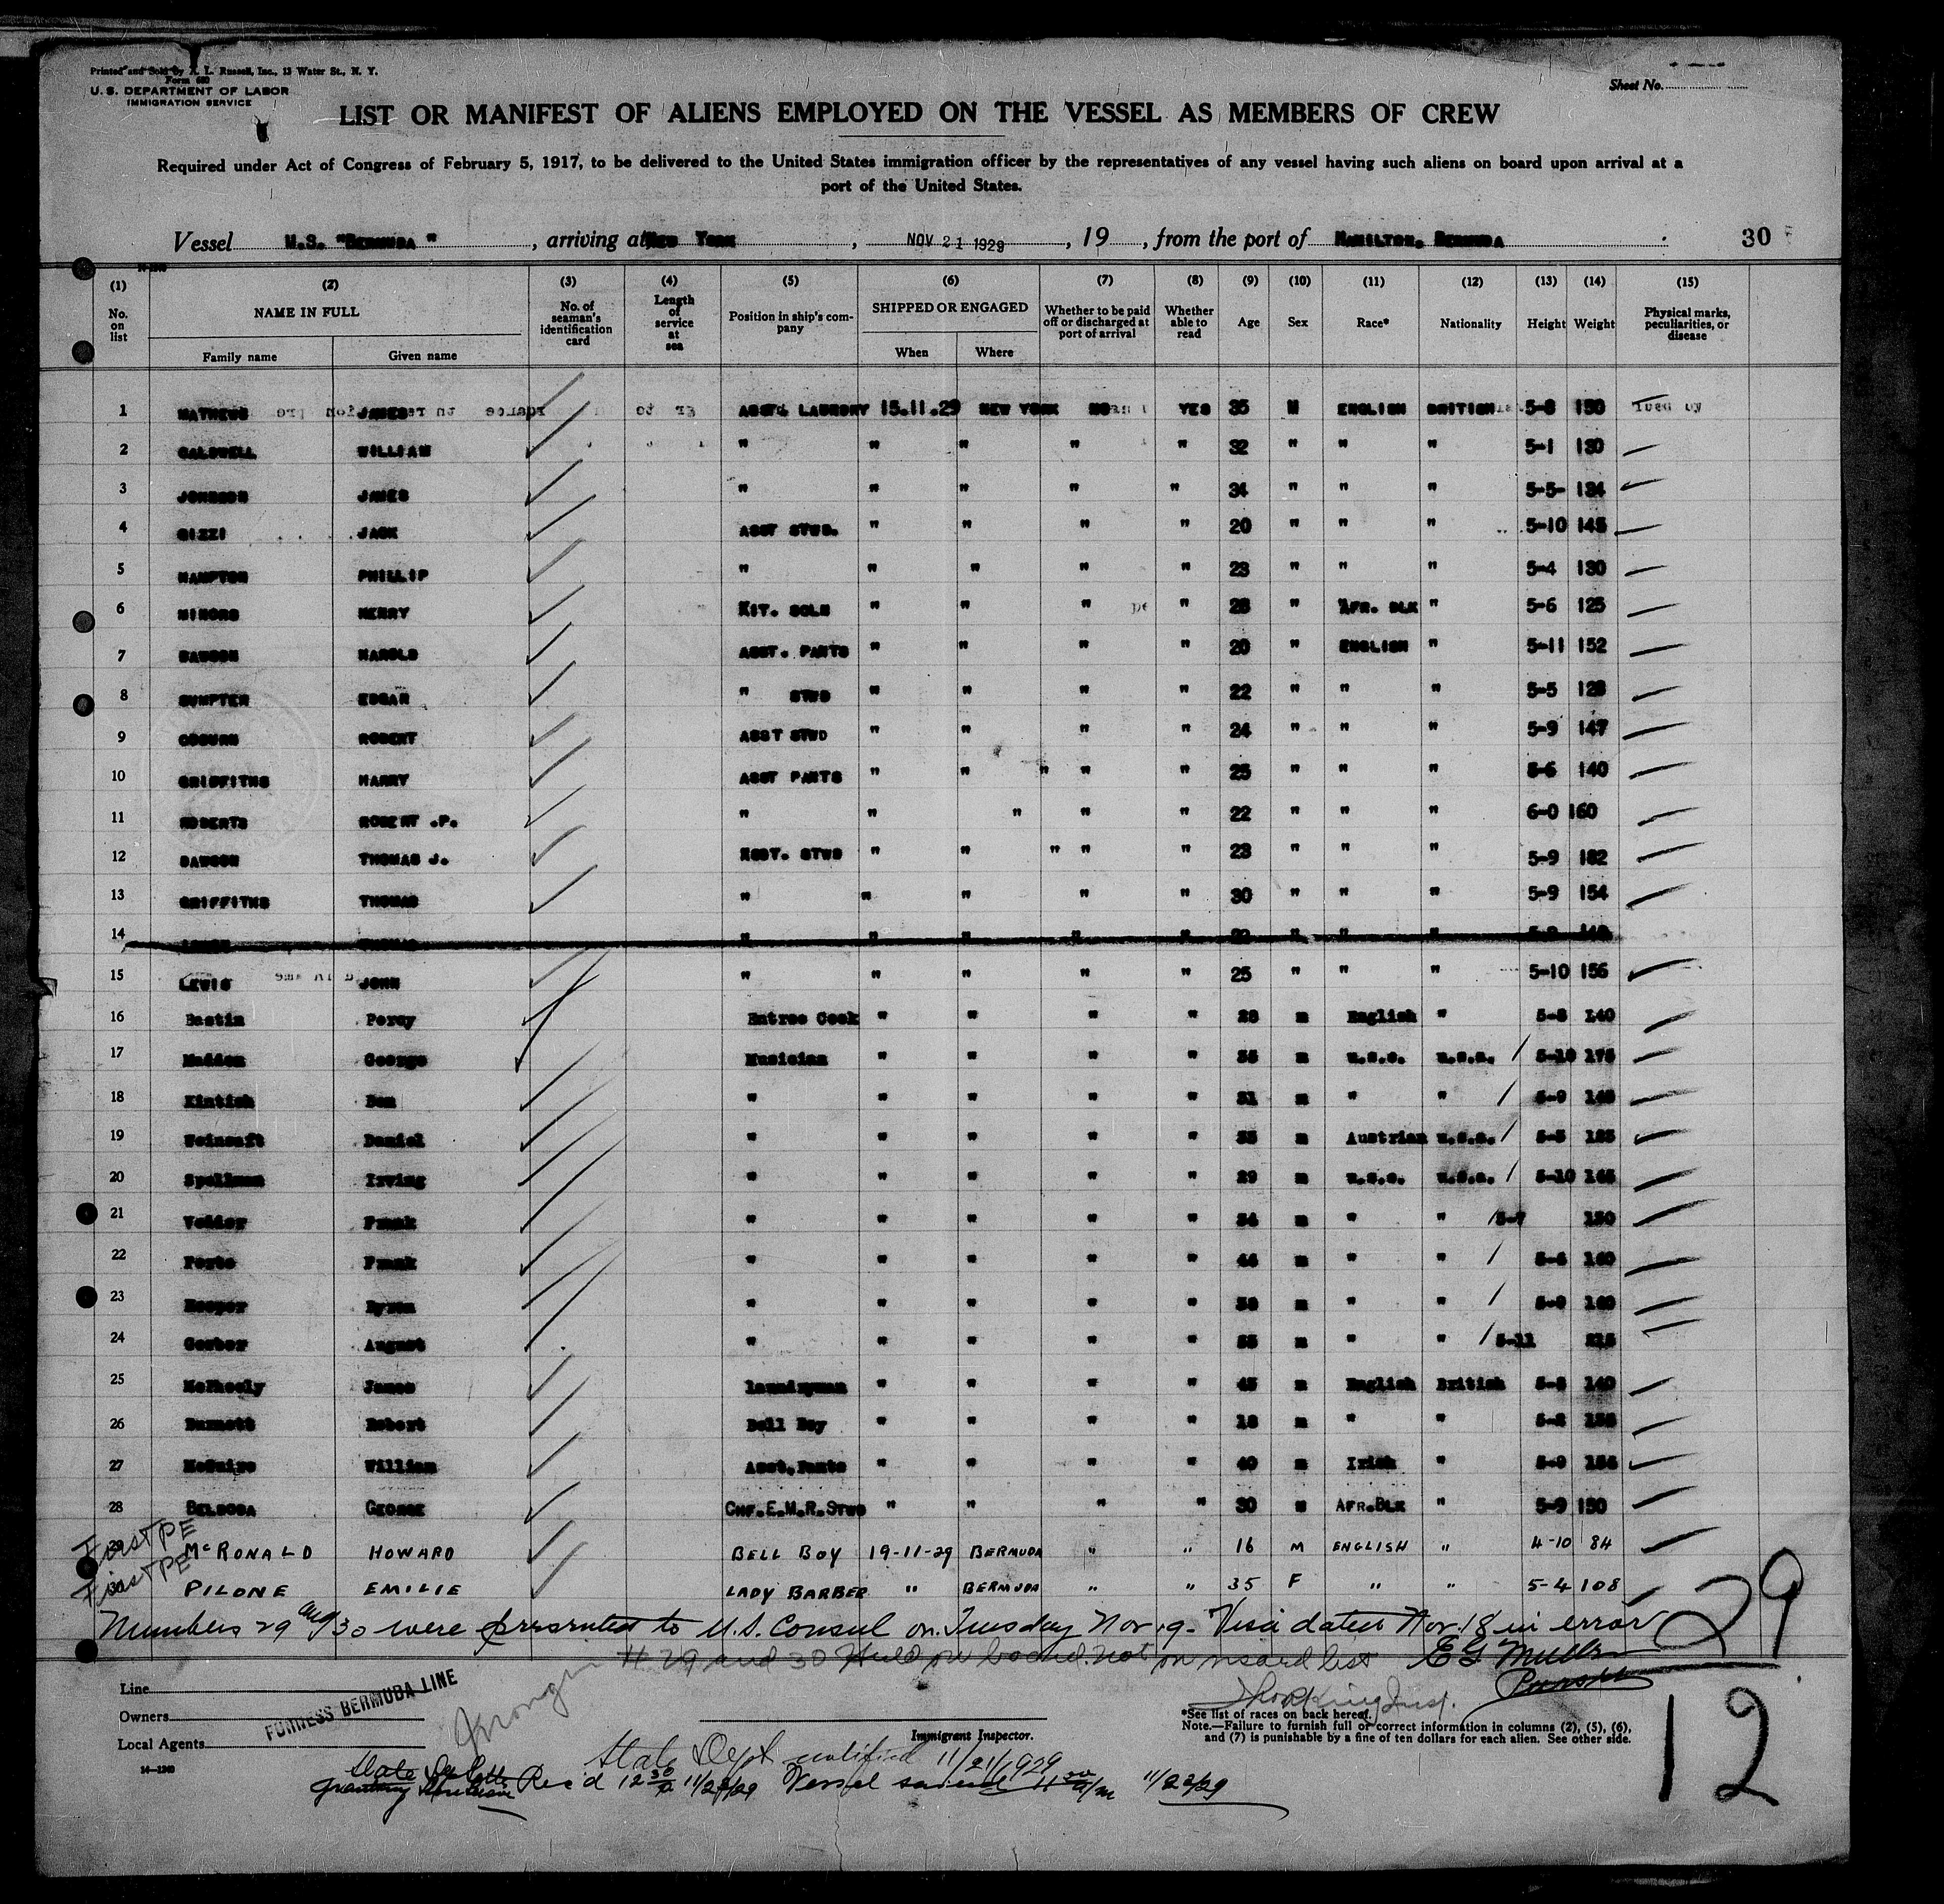 Printed and Sold by A. L. Russell, Inc., 13 Water St., N. Y.
Form 680
U. S. DEPARTMENT OF LABOR
IMMIGRATION SERVICE
Sheet No.
LIST OR MANIFEST OF ALIENS EMPLOYED ON THE VESSEL AS MEMBERS OF CREW
Required under Act of Congress of February 5, 1917, to be delivered to the United States immigration officer by the representatives of any vessel having such aliens on board upon arrival at a
port of the United States.
Vessel M.S. "BERMUDA", arriving at NEW YORK, NOV 21 1929, 19, from the port of HAMILTON, BERMUDA 30
(1) No. on list (2) NAME IN FULL Family name Given name (3) No. of seaman's identification card (4) Length of service at sea (5) Position in ship's company (6) SHIPPED OR ENGAGED When Where (7) Whether to be paid off or discharged at port of arrival (8) Whether able to read (9) Age (10) Sex (11) Race* (12) Nationality (13) Height (14) Weight (15) Physical marks, peculiarities, or disease
1 MATHEWS JAMES ASST. LAUNDRY 15.11.29 NEW YORK NO YES 35 M ENGLISH BRITISH 5-8 150
2 CALDWELL WILLIAM " " " " " 32 " " " 5-1 130
3 JOHNSON JAMES " " " " " 34 " " " 5-5 134
4 GIZZI JACK ASST STWD. " " " " 20 " " " 5-10 145
5 HAMPTON PHILLIP " " " " " 23 " " " 5-4 130
6 MINORS HENRY KIT. SCLN " " " " 28 " AFR. BLK " 5-6 125
7 DAWSON HAROLD ASST. PANTS " " " " 20 " ENGLISH " 5-11 152
8 SUMPTER EDGAR " STWD " " " " 22 " " " 5-5 128
9 COBURN ROBERT ASST STWD " " " " 24 " " " 5-9 147
10 GRIFFITHS HARRY ASST PANTS " " " " " 25 " " " 5-6 140
11 ROBERTS ROBERT .P. " " " " " 22 " " " 6-0 160
12 DAWSON THOMAS J. ASST. STWD " " " " " 23 " " " 5-9 182
13 GRIFFITHS THOMAS " " " " " 30 " " " 5-9 154
14 THOMAS " " " " " " " "
15 LEWIS JOHN " " " " " 25 " " " 5-10 156
16 Bastin Percy Entree Cook " " " " 28 m English " 5-8 140
17 Madden George Musician " " " " m u.s.a. u.s.a. 5-10 175
18 Kintish Ben " " " " " 31 m " " 5-9
19 Weinsaft Daniel " " " " " m Austrian u.s.a. 5-5
20 Spellman Irving " " " " " 29 m u.s.a. u.s.a. 5-10 165
21 Frank " " " " " m " " 5-7 150
22 Porto Frank " " " " " 44 m " " 160
23 Byron " " " " " m " " 160
24 Gerber August " " " " " m " " 5-11
25 McFheely James laundryman " " " " 45 m English British 140
26 Burnett Robert Bell Boy " " " " 18 m " "
27 McGuire William Asst.Pants " " " " 40 m Irish " 5-9
28 BELBODA GEORGE CHF.E.M.R.STWD " " " " 30 M AFR.BLK " 5-9 150
First PE 29 McRONALD HOWARD BELL BOY 19-11-29 BERMUDA " " 16 M ENGLISH " 4-10 84
First PE 30 PILONE EMILIE LADY BARBER " BERMUDA " " 35 F " " 5-4 108
Numbers 29 and 30 were presented to U.S. Consul on Tuesday Nov 19. Visa dated Nov. 18 in error
# 29 and 30 Held on board. not on visaed list
29
12
Line
Owners FURNESS BERMUDA LINE
Local Agents
Immigrant Inspector.
*See list of races on back hereof.
Note.—Failure to furnish full or correct information in columns (2), (5), (6),
and (7) is punishable by a fine of ten dollars for each alien. See other side.
14—1240
State Dept notified 11/21/1929
Rec'd 12 30 11/22/29 Vessel 11/22/29